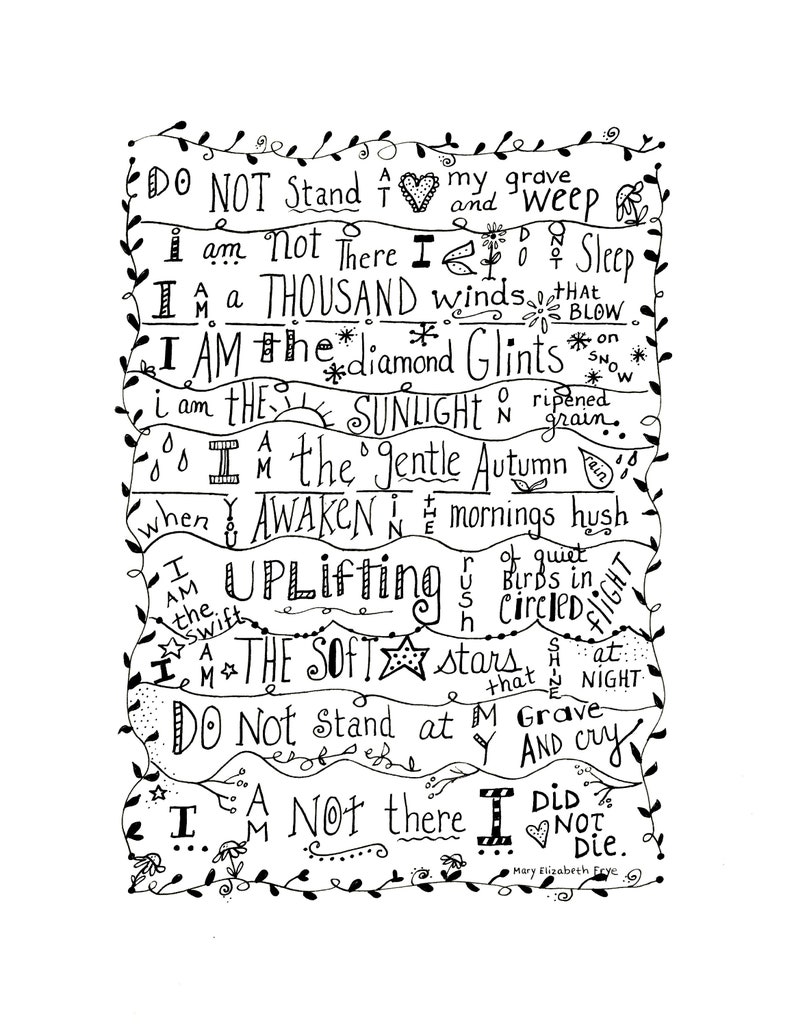 DO NOT Stand AT my grave and weep
i am not There I DO NOT Sleep
I AM a THOUSAND winds tHAt BLOW
I AM the diamond Glints on SNOW
i am tHE SUNLIGHt ON ripened grain
I AM the gentle Autumn rain
when YOU AWAKEN iN tHE mornings hush
I AM the swift UPLifting rUSh of quiet BirDs in CircLED fLIGHT
I AM THE SOfT stars that SHINE at NIGHT
DO NOt Stand at MY Grave AND cry
I AM NOt there I DiD NOT Die.
Mary Elizabeth Frye